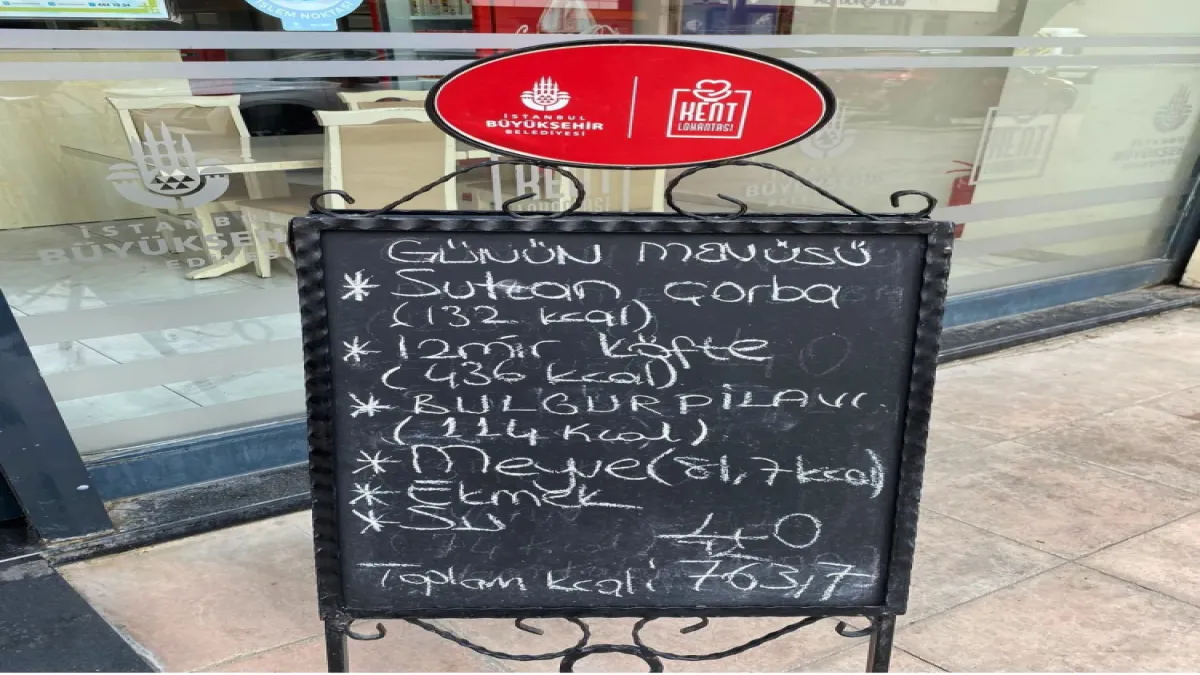 İŞLEM NOKTASI
İSTANBUL
BÜYÜKŞEHİR
BELEDİYESİ
KENT
LOKANTASI
GÜNÜN MENÜSÜ
* Sultan çorba
(132 kcal)
* İzmir köfte
(436 kcal)
* BULGUR PİLAVI
(114 kcal)
* Meyve (81,7 kcal)
* Ekmek
* Su 40
Toplam kcali 763,7
İSTANBUL
BÜYÜKŞEHİR
KENT
KENT